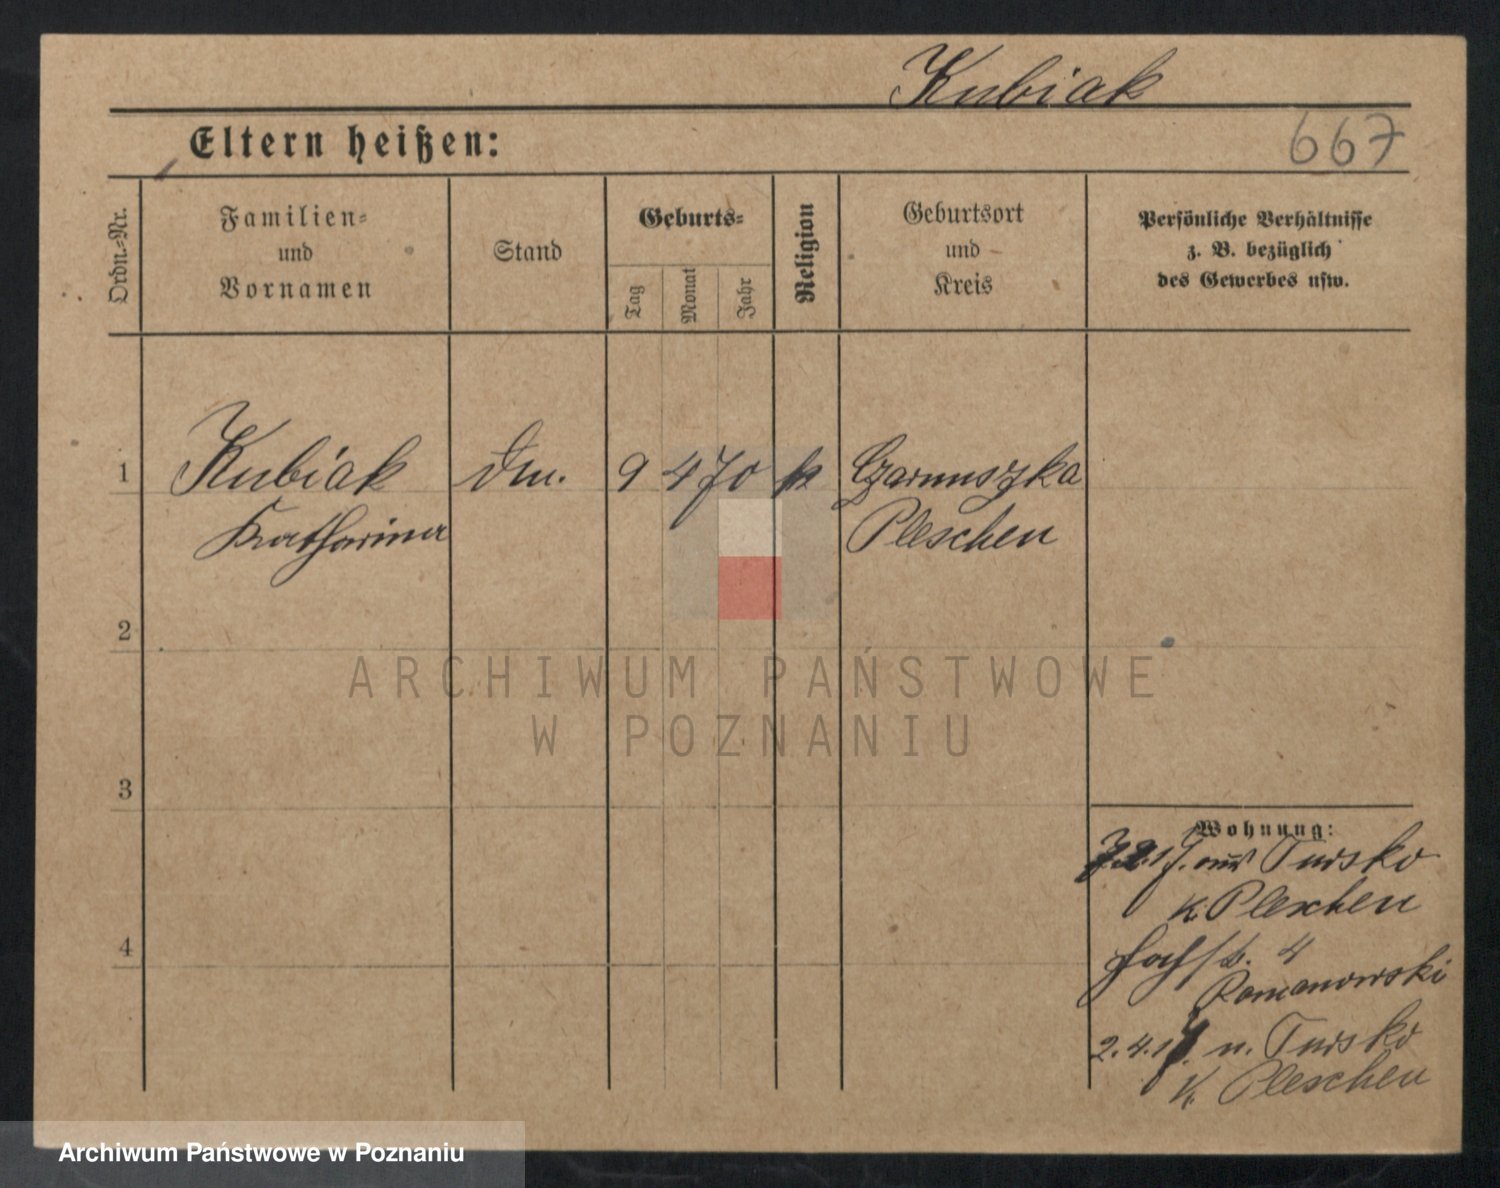 Kubiak
Eltern heißen:
667
Ordn.-Nr.
Familien-
und
Vornamen
Stand
Geburts-
Tag
Monat
Jahr
Religion
Geburtsort
und
Kreis
Persönliche Verhältnisse
z. B. bezüglich
des Gewerbes usw.
1
Kubiak
Katharina
9 4 70
Czarnuszka
Pleschen
2
3
4
Wohnung:
Tursko
K. Pleschen
4
Romanowski
2.4.17. n. Tursko
K. Pleschen
ARCHIWUM PAŃSTWOWE
W POZNANIU
Archiwum Państwowe w Poznaniu